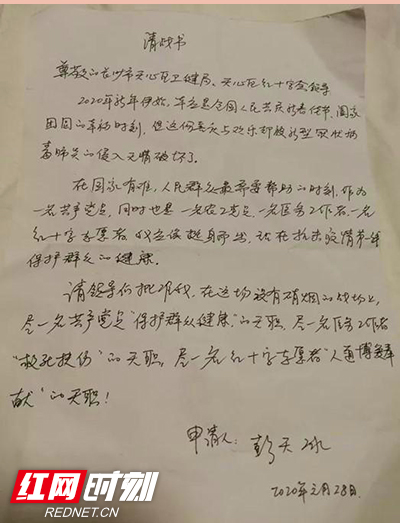 请战书
尊敬的长沙市天心区卫健局、天心区红十字会领导
2020年新年伊始，本应是全国人民共庆新春佳节、阖家
团圆的幸福时刻，但这份喜庆与欢乐却被新型冠状病
毒肺炎的侵入无情破坏了。
在国家有难，人民群众最需要帮助的时刻，作为
一名共产党员，同时也是一名农工党员，一名医务工作者，一名
红十字志愿者，我应该挺身而出，站在抗击疫情第一线
保护群众的健康。
请领导们批准我，在这场没有硝烟的战场上，
尽一名共产党员“保护群众健康”的天职，尽一名医务工作者
“救死扶伤”的天职，尽一名红十字志愿者“人道博爱奉
献”的天职！
申请人：彭天
2020年元月28日
红网时刻
REDNET.CN